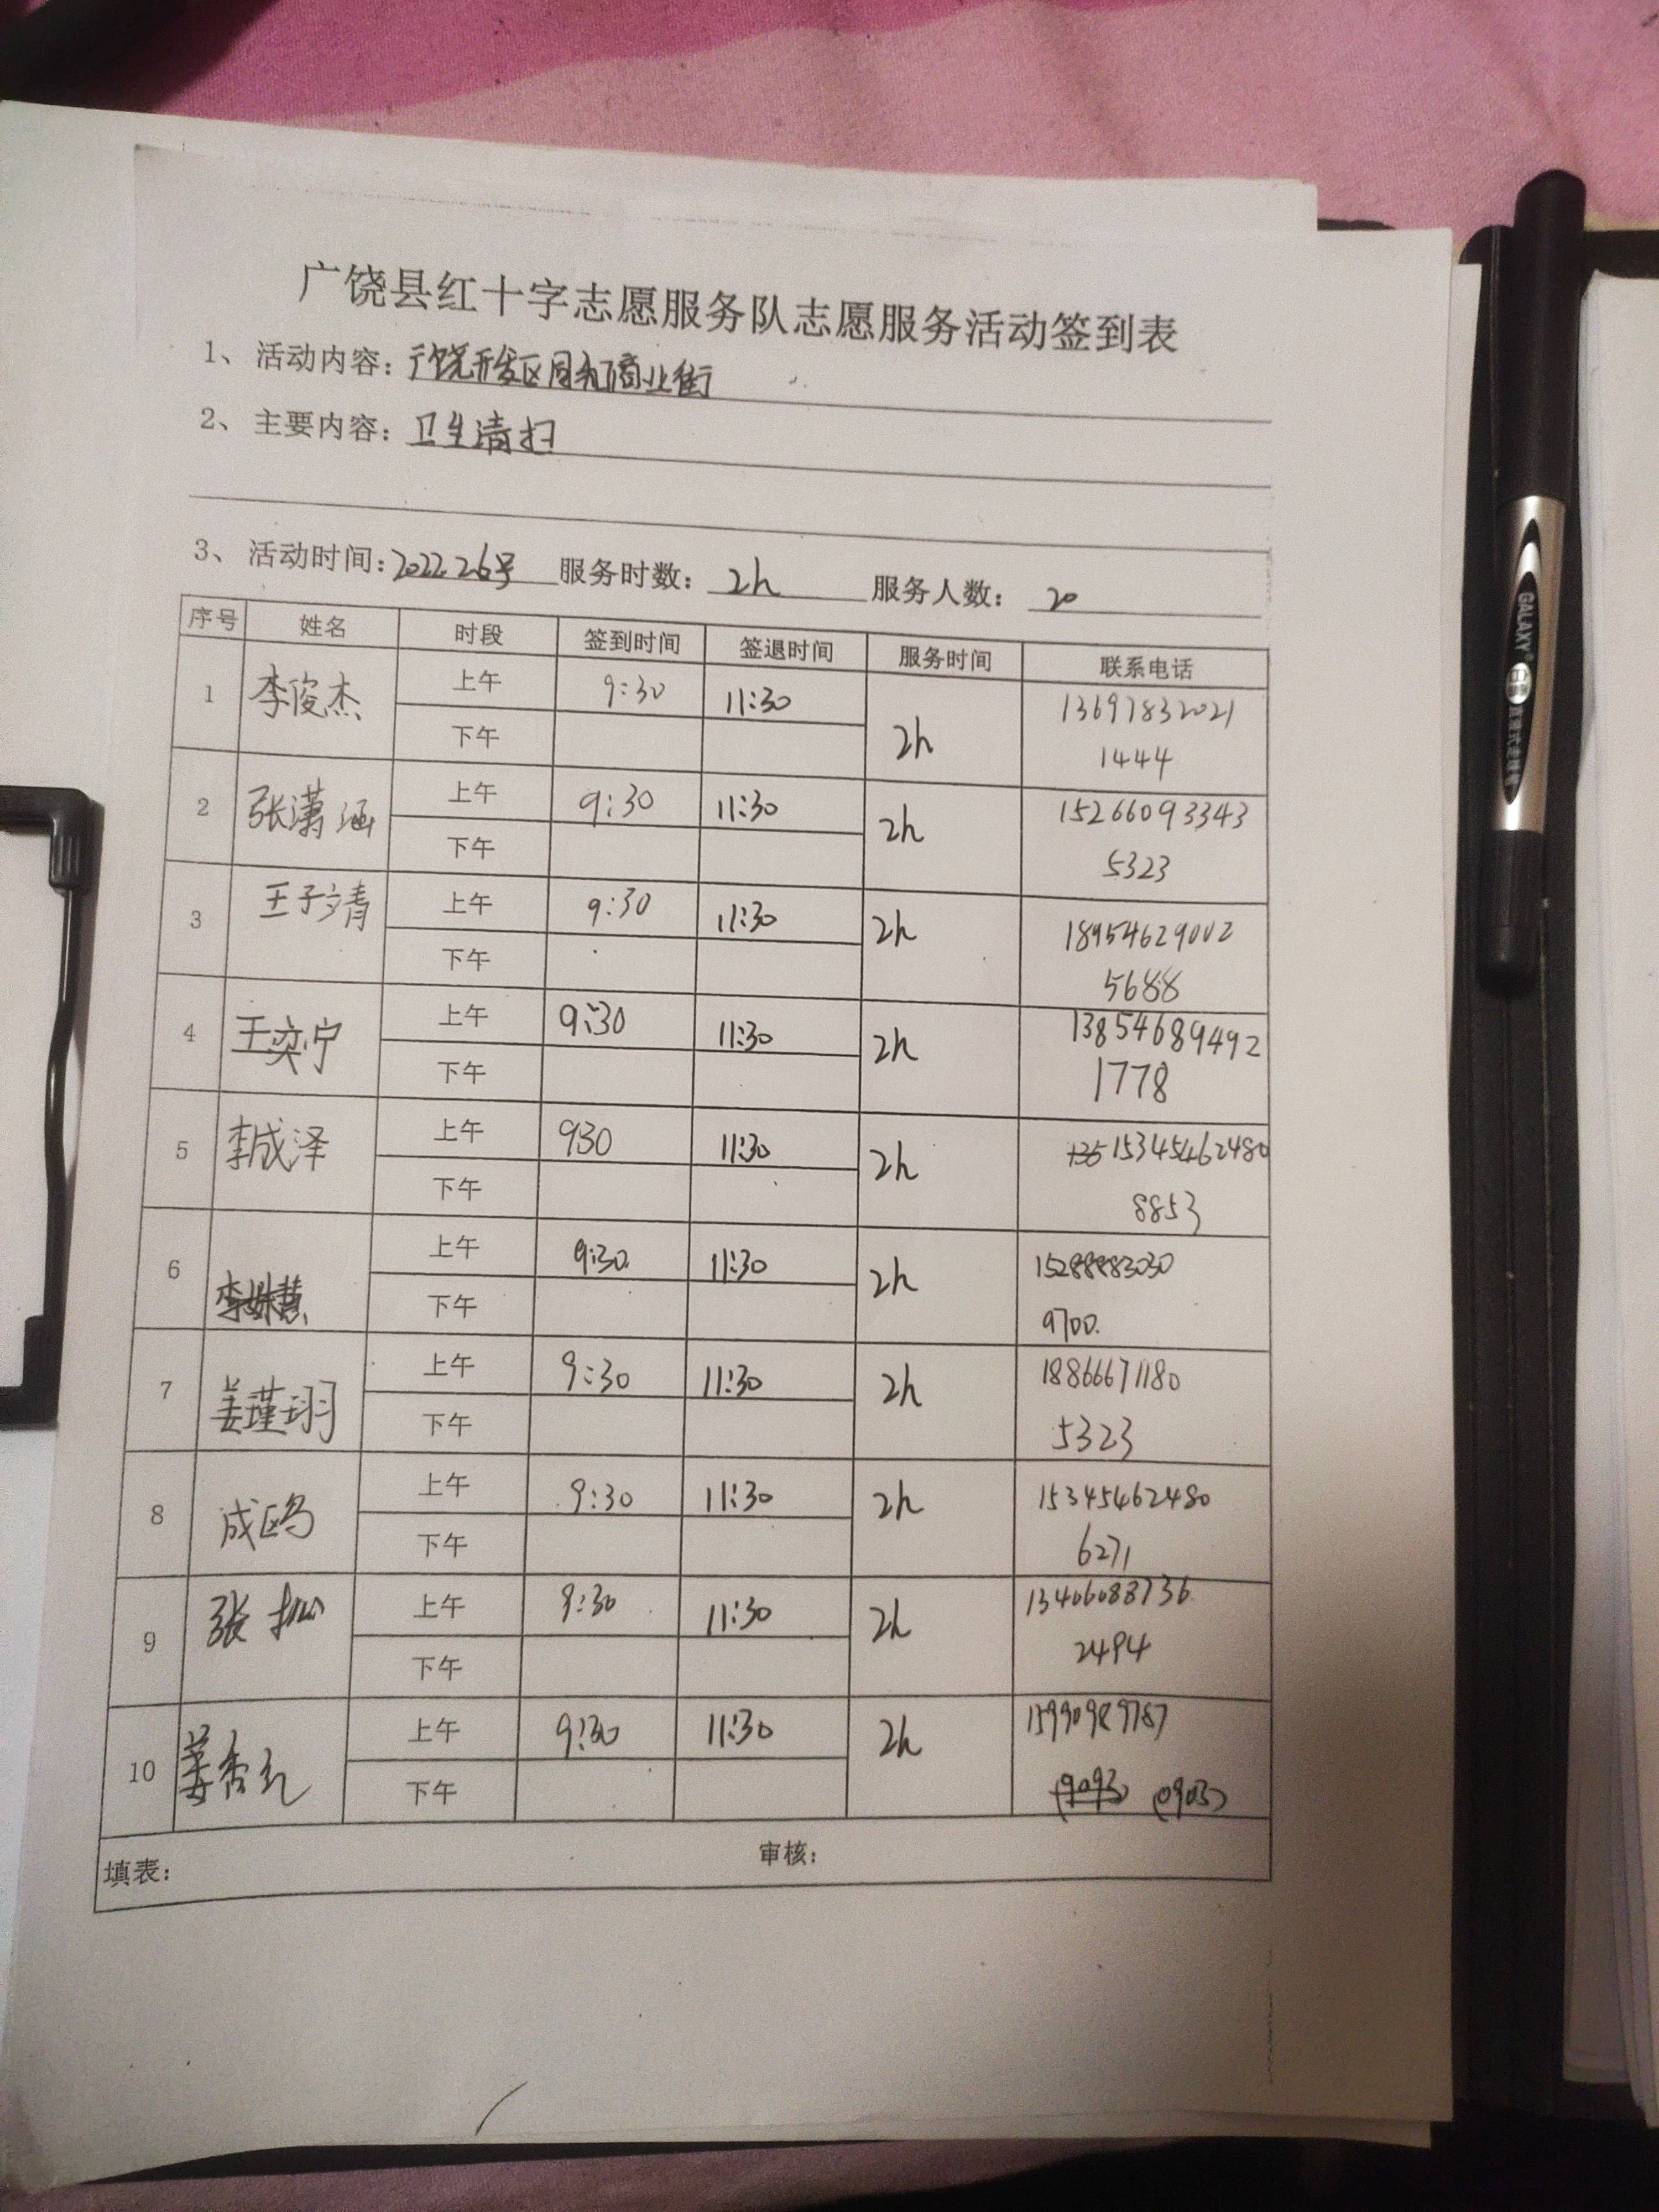 广饶县红十字志愿服务队志愿服务活动签到表
1、活动内容：广饶开发区同和商业街
2、主要内容：卫生清扫
3、活动时间：2022.2.6号 服务时数：2h 服务人数：20
序号 姓名 时段 签到时间 签退时间 服务时间 联系电话
1 李俊杰 上午 9:30 11:30 2h 13697832021
下午 1444
2 张潇涵 上午 9:30 11:30 2h 15266093343
下午 5323
3 王子靖 上午 9:30 11:30 2h 18954629002
下午 5688
4 王奕宁 上午 9:30 11:30 2h 13854689492
下午 1778
5 李成泽 上午 930 11:30 2h 15345462480
下午 8853
6 李姝慧 上午 9:30 11:30 2h 15288883030
下午 9700
7 姜瑾翊 上午 9:30 11:30 2h 18866671180
下午 5323
8 成 上午 9:30 11:30 2h 15345462480
下午 6271
9 张 上午 9:30 11:30 2h 13406088736
下午 2494
10 姜秀 上午 9:30 11:30 2h 15990989787
下午 (0903)
填表： 审核：
GALAXY